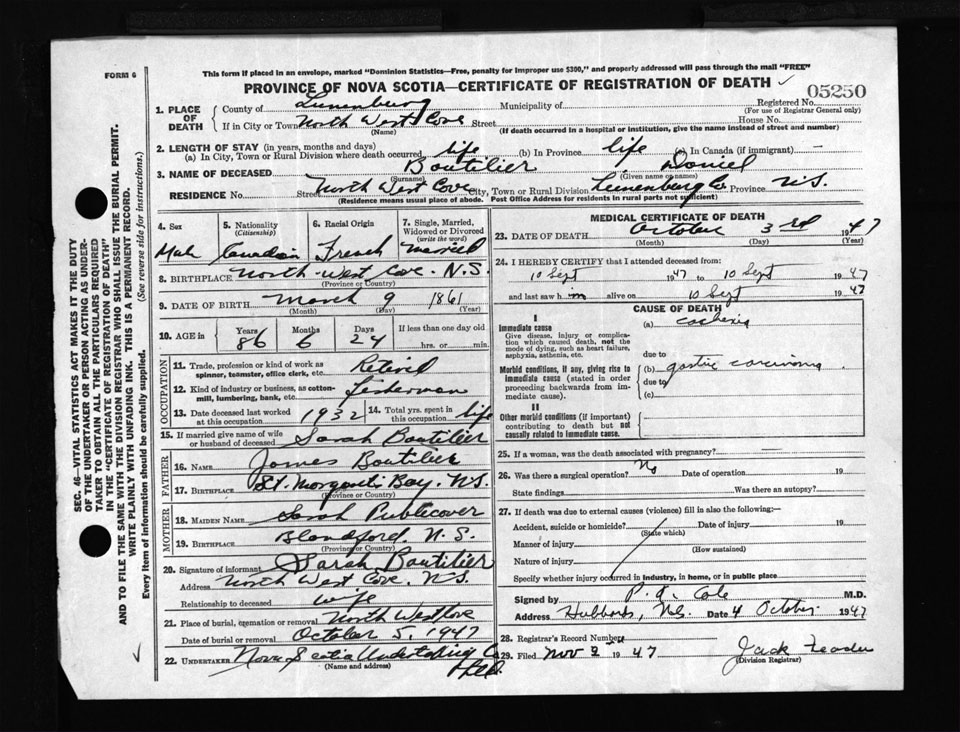 FORM 6
This form if placed in an envelope, marked "Dominion Statistics—Free, penalty for improper use $300," and properly addressed will pass through the mail "FREE"
PROVINCE OF NOVA SCOTIA—CERTIFICATE OF REGISTRATION OF DEATH ✓
05250
1. PLACE OF DEATH
County of Lunenburg Municipality of Registered No.
(For use of Registrar General only)
If in City or Town North West Cove Street House No.
(Name) (If death occurred in a hospital or institution, give the name instead of street and number)
2. LENGTH OF STAY (in years, months and days)
(a) In City, Town or Rural Division where death occurred life (b) In Province life (c) In Canada (if immigrant) —
3. NAME OF DECEASED Boutilier Daniel
(Surname) (Given name or names)
RESIDENCE No. Street North West Cove City, Town or Rural Division Lunenburg Co. Province N.S.
(Residence means usual place of abode. Post Office Address for residents in rural parts not sufficient)
4. Sex 5. Nationality (Citizenship) 6. Racial Origin 7. Single, Married, Widowed or Divorced (write the word)
Male Canadian French Married
8. BIRTHPLACE North-West Cove. N.S.
(Province or Country)
9. DATE OF BIRTH March 9 1861
(Month) (Day) (Year)
10. AGE in Years Months Days If less than one day old
86 6 24 hrs. or min.
OCCUPATION
11. Trade, profession or kind of work as spinner, teamster, office clerk, etc. Retired
12. Kind of industry or business, as cotton-mill, lumbering, bank, etc. Fisherman
13. Date deceased last worked at this occupation 1932 14. Total yrs. spent in this occupation life
15. If married give name of wife or husband of deceased Sarah Boutilier
FATHER
16. NAME James Boutilier
17. BIRTHPLACE St. Margarets Bay. N.S.
(Province or Country)
MOTHER
18. MAIDEN NAME Sarah Publicover
19. BIRTHPLACE Blandford. N.S.
(Province or Country)
20. Signature of informant Sarah Boutilier
Address North West Cove. N.S.
Relationship to deceased wife
21. Place of burial, cremation or removal North West Cove
Date of burial or removal October 5, 1947
22. UNDERTAKER Nova Scotia Undertaking Co
(Name and address)
MEDICAL CERTIFICATE OF DEATH
23. DATE OF DEATH October 3rd 1947
(Month) (Day) (Year)
24. I HEREBY CERTIFY that I attended deceased from:
10 Sept 1947 to 10 Sept 1947
and last saw him alive on 10 Sept 1947
CAUSE OF DEATH
I
Immediate cause (a) cachexia
Give disease, injury or complication which caused death, not the mode of dying, such as heart failure, asphyxia, asthenia, etc.
due to
Morbid conditions, if any, giving rise to immediate cause (stated in order proceeding backwards from immediate cause).
(b) gastric carcinoma.
due to
(c)
II
Other morbid conditions (if important) contributing to death but not causally related to immediate cause.
25. If a woman, was the death associated with pregnancy?
26. Was there a surgical operation? No Date of operation 19
State findings Was there an autopsy?
27. If death was due to external causes (violence) fill in also the following:—
Accident, suicide or homicide? Date of injury 19
(State which)
Manner of injury
(How sustained)
Nature of injury
Specify whether injury occurred in industry, in home, or in public place
Signed by Cole M.D.
Address Hubbards, N.S. Date 4 October 1947
28. Registrar's Record Number
29. Filed Nov 2 1947 Jack
(Division Registrar)
SEC. 46—VITAL STATISTICS ACT MAKES IT THE DUTY
OF THE UNDERTAKER OR PERSON ACTING AS UNDER-
TAKER TO OBTAIN ALL OF THE PARTICULARS REQUIRED
IN THE "CERTIFICATE OF REGISTRATION OF DEATH"
AND TO FILE THE SAME WITH THE DIVISION REGISTRAR WHO SHALL ISSUE THE BURIAL PERMIT.
WRITE PLAINLY WITH UNFADING INK. THIS IS A PERMANENT RECORD.
Every item of information should be carefully supplied. (See reverse side for instructions.)